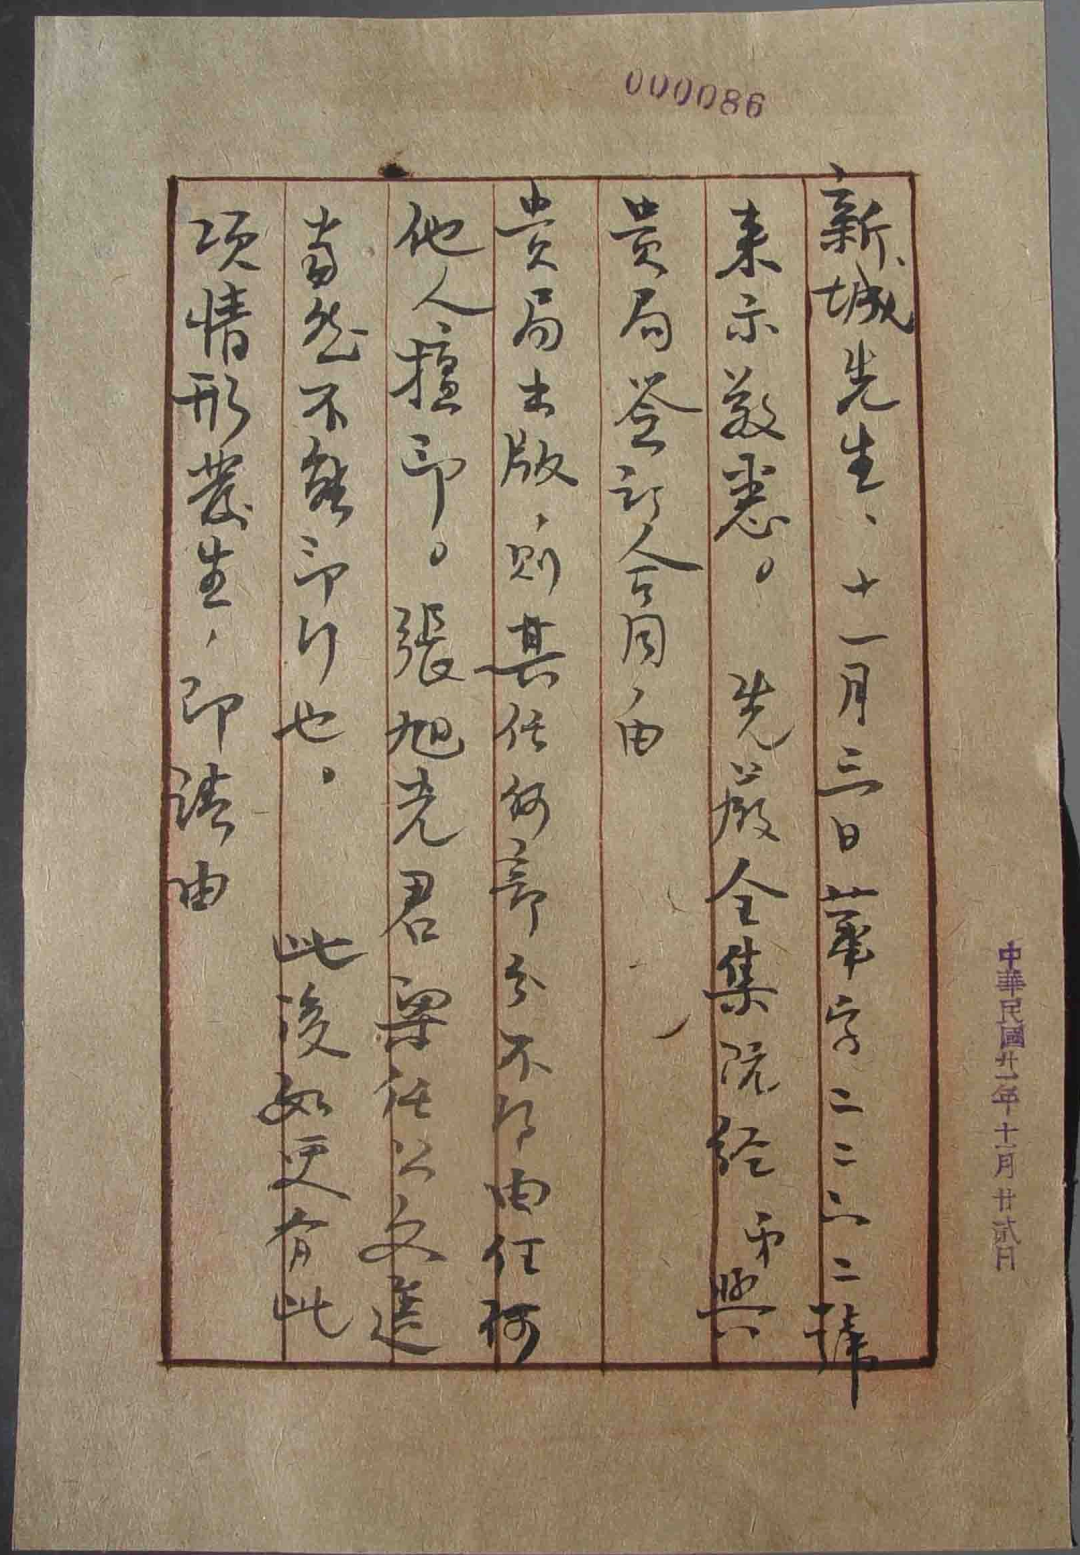 000086
新城先生、十一月三日華字二二六二號
来示敬悉。 先嚴全集既經弟與
貴局簽訂合同，由
貴局出版，則其任何部分不得由任何
他人擅印。張旭光君梁任公文選
當然不能印行也。 此後如更有此
項情形發生，即請由
中華民國廿一年十一月廿貳日